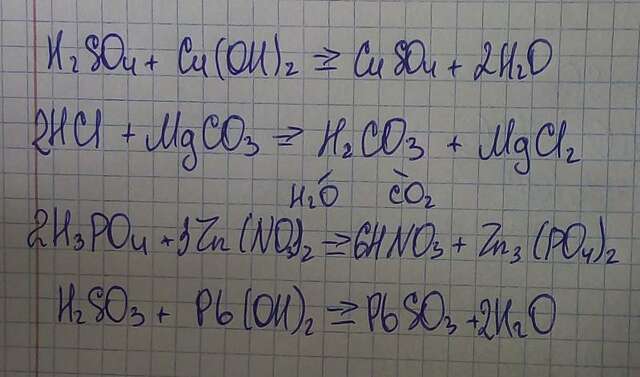 H₂SO₄ + Cu(OH)₂ ⇒ CuSO₄ + 2H₂O
2HCl + MgCO₃ ⇒ H₂CO₃ + MgCl₂
H₂O CO₂
2H₃PO₄ + 3Zn(NO₃)₂ ⇒ 6HNO₃ + Zn₃(PO₄)₂
H₂SO₃ + Pb(OH)₂ ⇒ PbSO₃ + 2H₂O